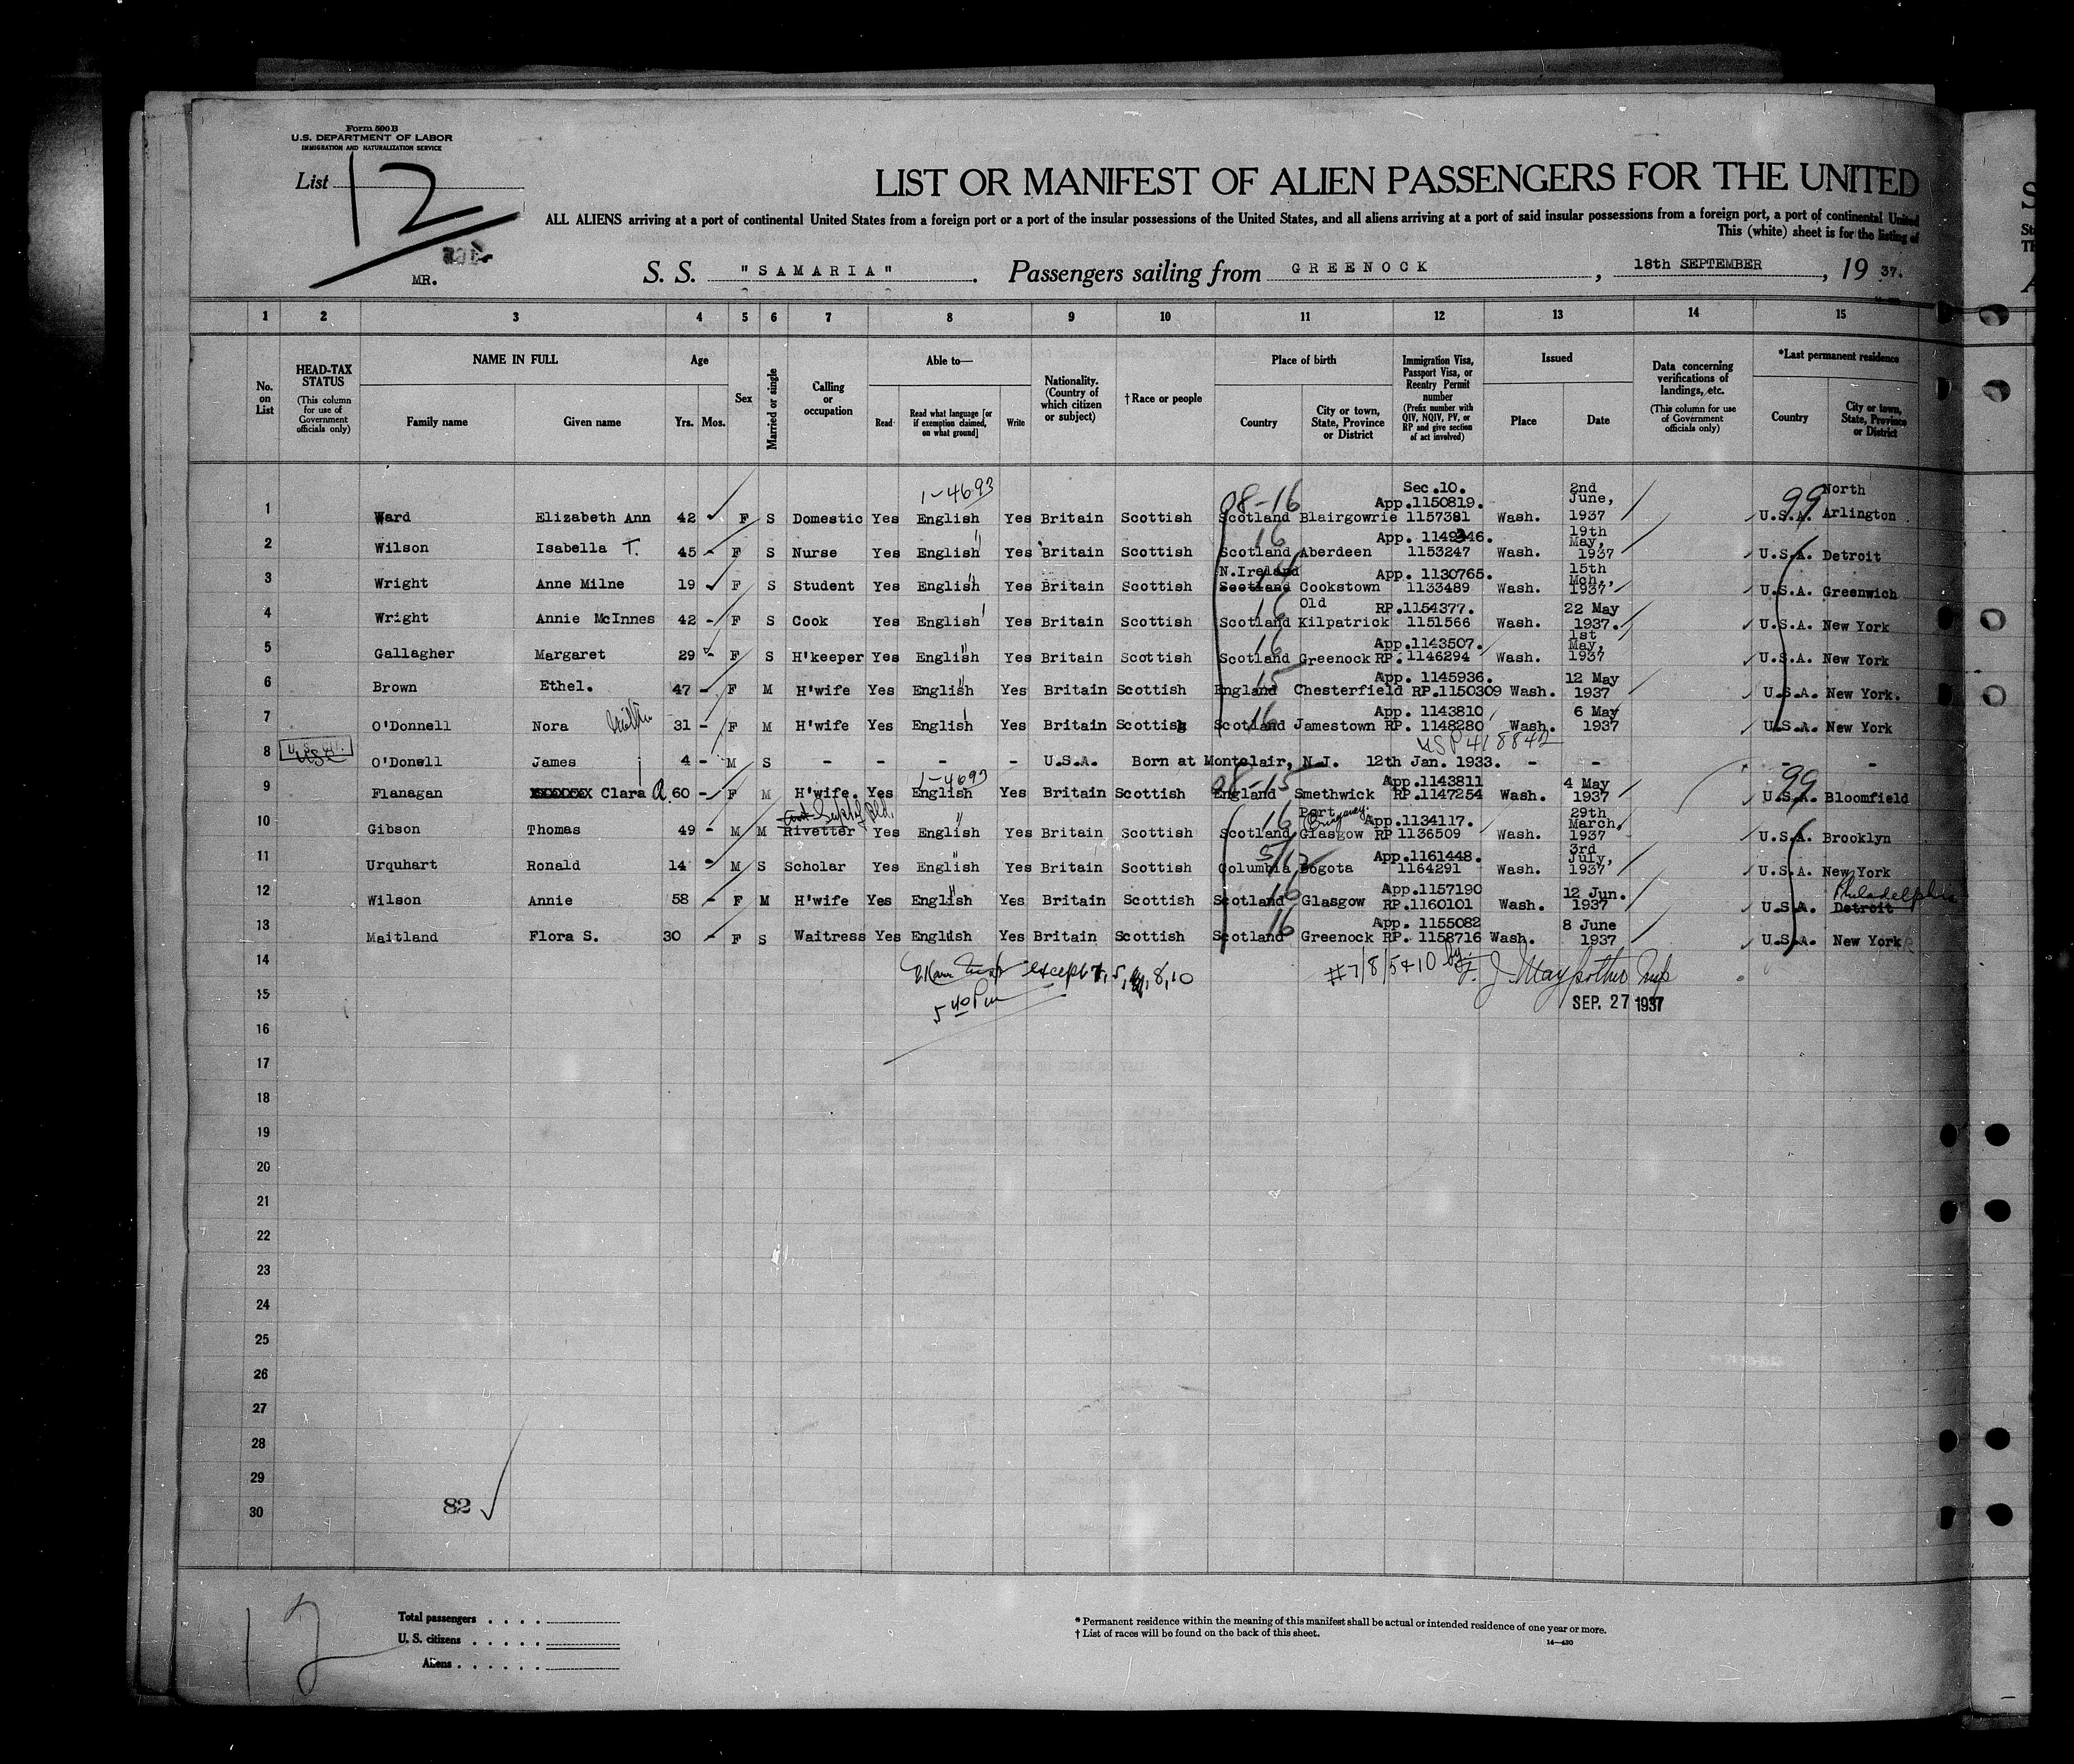 Form 500 B
U.S. DEPARTMENT OF LABOR
IMMIGRATION AND NATURALIZATION SERVICE
List 12
LIST OR MANIFEST OF ALIEN PASSENGERS FOR THE UNITED
ALL ALIENS arriving at a port of continental United States from a foreign port or a port of the insular possessions of the United States, and all aliens arriving at a port of said insular possessions from a foreign port, a port of continental United
This (white) sheet is for the listing of
MR.
S. S. "SAMARIA". Passengers sailing from GREENOCK, 18th SEPTEMBER, 19 37.
1 2 3 4 5 6 7 8 9 10 11 12 13 14 15
No. on List
HEAD-TAX STATUS (This column for use of Government officials only)
NAME IN FULL
Family name
Given name
Age
Yrs. Mos.
Sex
Married or single
Calling or occupation
Able to—
Read
Read what language [or if exemption claimed, on what ground]
Write
Nationality. (Country of which citizen or subject)
†Race or people
Place of birth
Country
City or town, State, Province or District
Immigration Visa, Passport Visa, or Reentry Permit number (Prefix number with QIV, NQIV, PV, or RP and give section of act involved)
Issued
Place
Date
Data concerning verifications of landings, etc. (This column for use of Government officials only)
*Last permanent residence
Country
City or town, State, Province or District
1-4693 08-16 Sec.10. App.1150819. 2nd June, 99 North
1 Ward Elizabeth Ann 42 F S Domestic Yes English Yes Britain Scottish Scotland Blairgowrie 1157381 Wash. 1937 U.S.A. Arlington
16 App. 1149346. 19th May,
2 Wilson Isabella T. 45 - F S Nurse Yes English Yes Britain Scottish Scotland Aberdeen 1153247 Wash. 1937 U.S.A. Detroit
N.Ireland App. 1130765. 15th Mch.,
3 Wright Anne Milne 19 F S Student Yes English Yes Britain Scottish Scotland Cookstown 1133489 Wash. 1937 U.S.A. Greenwich
16 Old RP.1154377. 22 May
4 Wright Annie McInnes 42 - F S Cook Yes English Yes Britain Scottish Scotland Kilpatrick 1151566 Wash. 1937. U.S.A. New York
16 App.1143507. 1st May,
5 Gallagher Margaret 29 - F S H'keeper Yes English Yes Britain Scottish Scotland Greenock RP. 1146294 Wash. 1937 U.S.A. New York
15 App. 1145936. 12 May
6 Brown Ethel. 47 - F M H'wife Yes English Yes Britain Scottish England Chesterfield RP.1150309 Wash. 1937 U.S.A. New York.
16 App. 1143810 6 May
7 O'Donnell Nora 31 - F M H'wife Yes English Yes Britain Scottish Scotland Jamestown RP. 1148280 Wash. 1937 U.S.A. New York
USP 418842
8 USC O'Donell James 4 - M S - - - - U.S.A. Born at Montclair, N.J. 12th Jan. 1933. - - - -
1-4693 08-15 App.1143811 4 May 99
9 Flanagan XXXXXXX Clara A. 60 - F M H'wife. Yes English Yes Britain Scottish England Smethwick RP.1147254 Wash. 1937 U.S.A. Bloomfield
16 Port App.1134117. 29th March,
10 Gibson Thomas 49 - M M Rivetter Yes English Yes Britain Scottish Scotland Glasgow RP 1136509 Wash. 1937 U.S.A. Brooklyn
App.1161448. 3rd July,
11 Urquhart Ronald 14 - M S Scholar Yes English Yes Britain Scottish Columbia Bogota 1164291 Wash. 1937 U.S.A. New York
16 App.1157190 12 Jun. Philadelphia
12 Wilson Annie 58 - F M H'wife Yes English Yes Britain Scottish Scotland Glasgow RP.1160101 Wash. 1937 U.S.A. Detroit
16 App. 1155082 8 June
13 Maitland Flora S. 30 - F S Waitress Yes English Yes Britain Scottish Scotland Greenock RP. 1158716 Wash. 1937 U.S.A. New York
14 except 7, 5, 8, 10 #7/8/5+10 by
15 5 40 Pm SEP. 27 1937
16
17
18
19
20
21
22
23
24
25
26
27
28
29
30
82
12
Total passengers
U. S. citizens
Aliens
* Permanent residence within the meaning of this manifest shall be actual or intended residence of one year or more.
† List of races will be found on the back of this sheet.
14—430